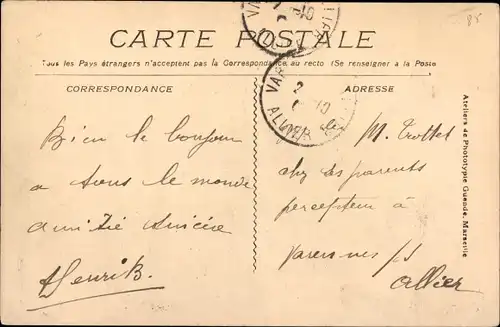 CARTE POSTALE
Tous les Pays étrangers n'acceptent pas la Correspondance au recto (Se renseigner à la Poste
CORRESPONDANCE
ADRESSE
Bien le bonjour
a tous le monde
amitié sincère
Henri B.
M. Trottet
chez ses parents
percepteur à
Varennes s/
Allier
VAR
ALLIER
Ateliers de Phototypie Guende, Marseille
85